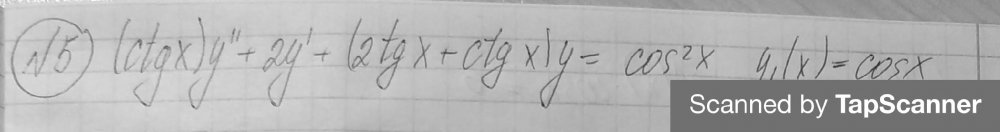 √5) (ctgx)y'' + 2y' + (2tgx + ctgx)y = cos²x y₁(x) = cosx
Scanned by TapScanner